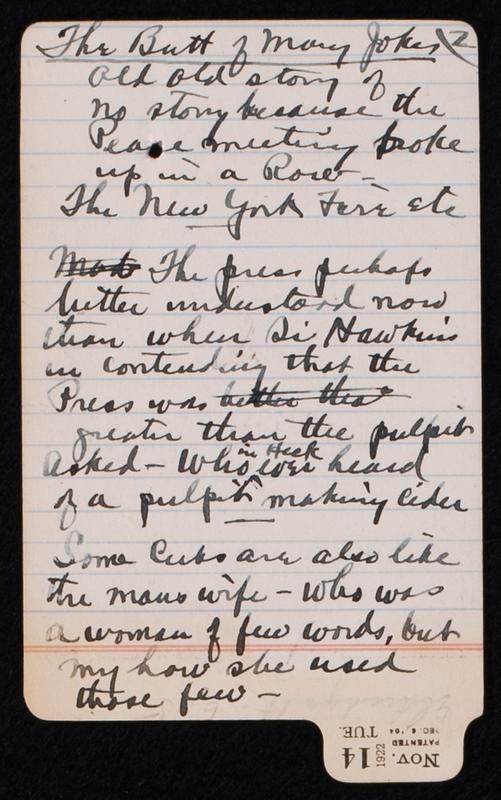 The Butt of Many Jokes 2
Old old story of
no story because the
Peace meeting broke
up in a Row -
The New York Fire etc
The press perhaps
better understood now
than when Si Hawkins
in contending that the
Press was better than
greater than the pulpit
asked - Who in Heck ever heard
of a pulpit making Cider
Some Cubs are also like
the mans wife - who was
a woman of few words, but
my how she used
those few -
Nov. 14 1922 TUE.
PATENTED
DEC. 6 '04